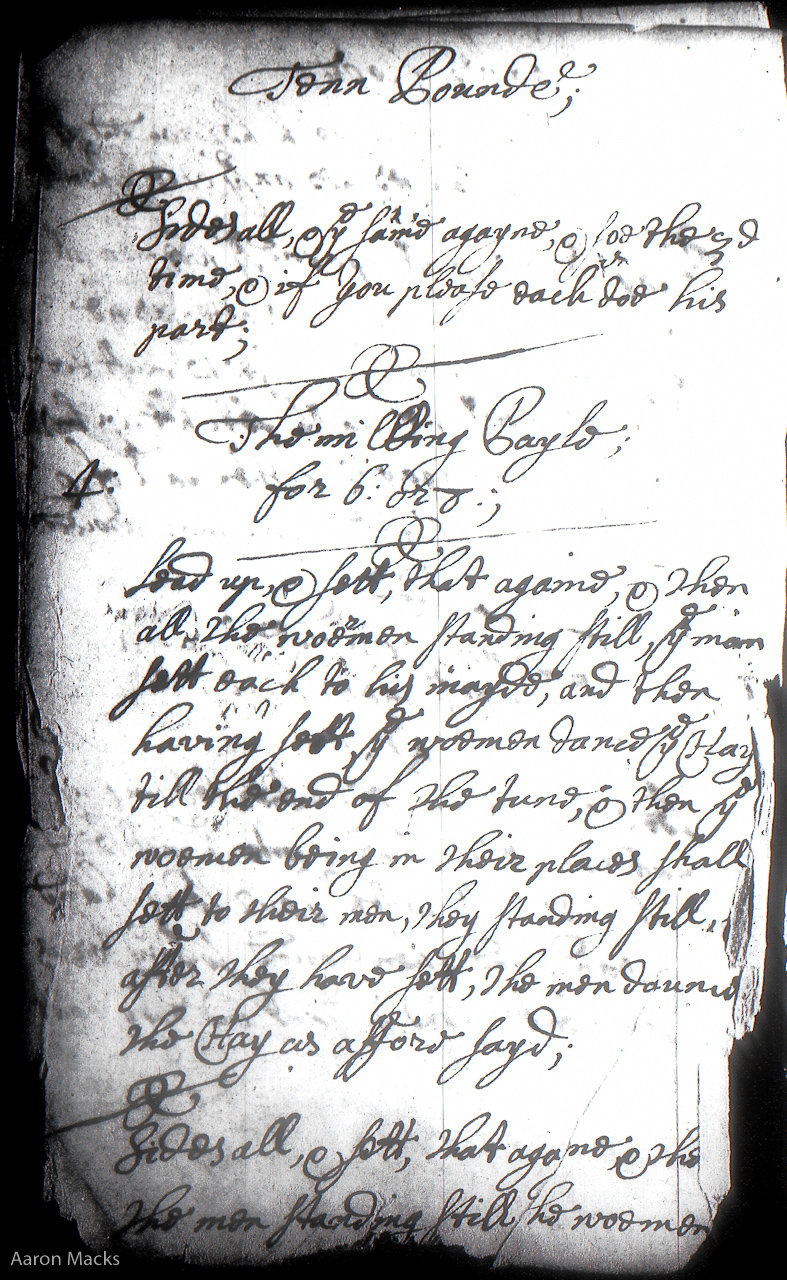 Tenn Pounde;
Sides all, & yᵉ same agayne, & soe the 3d
time, & if you please each doe his
part;
The milking Payle;
4:
for 6: or 8:;
Lead up, & sett, that againe, & then
all the woemen standing still, yᵉ men
sett each to his mayde, and then
having sett yᵉ woemen dance yᵉ Hay
till the end of the tune, & then yᵉ
woemen being in their places shall
sett to their men, they standing still,
after they have sett, the men daunce
the Hay as affore sayd;
Sides all, & sett, that agane, & the
the men standing still the woemen
Aaron Macks